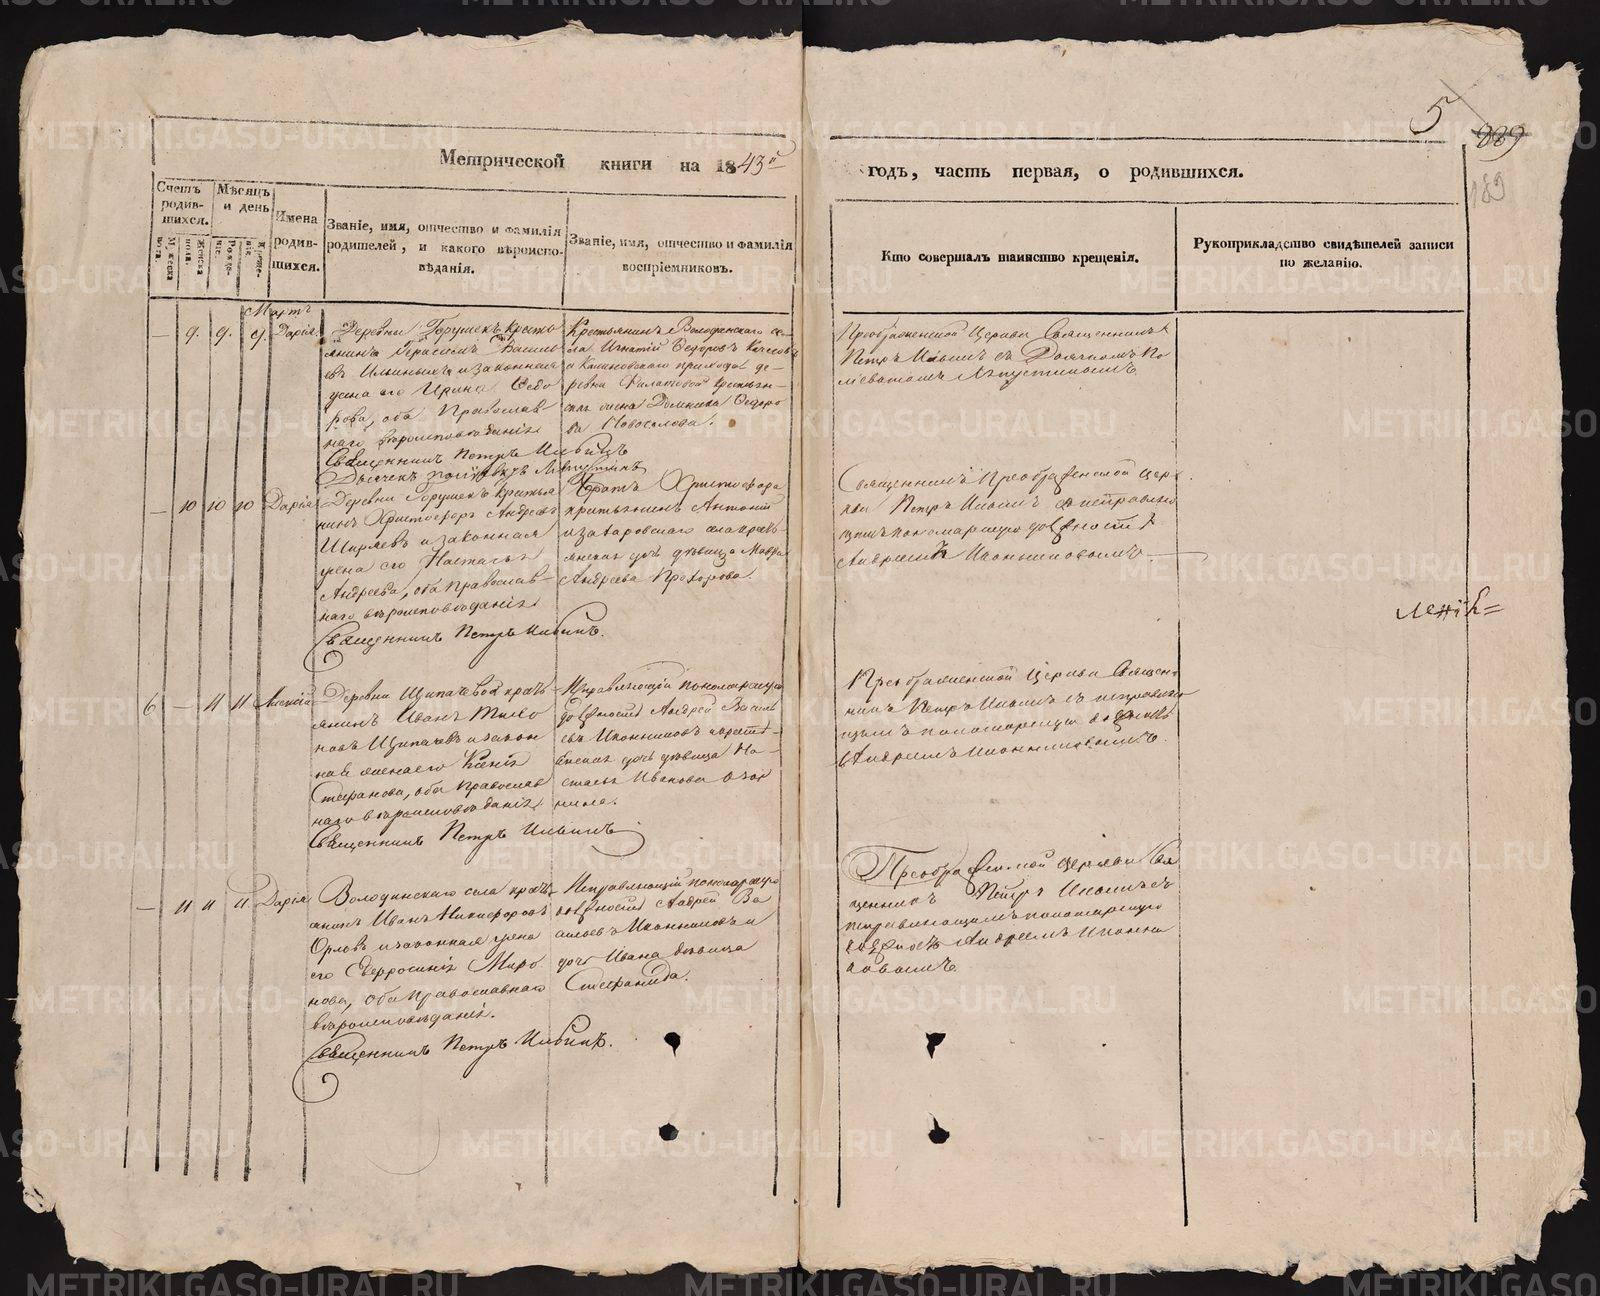 5
889
189
Метрической книги на 1843й
годъ, часть первая, о родившихся.
Счетъ родив-
шихся.
Мужеска
пола.
Женска
пола.
Мѣсяцъ
и день
Рожде-
нія.
Креще-
нія.
Имена
родив-
шихся.
Званіе, имя, отчество и фамилія
родителей, и какого вѣроиспо-
вѣданія.
Званіе, имя, отчество и фамилія
воспріемниковъ.
Кто совершалъ таинство крещенія.
Рукоприкладство свидѣтелей записи
по желанію.
Мартъ
— 9. 9. 9. Дарія
Деревни Горушекъ кресть
янинъ Герасимъ Василь
евъ Ильиныхъ и законная
жена его Ирина Ѳедо
рова, оба Православ-
наго вѣроисповѣданія
Священникъ Петръ Ильинъ
Крестьянинъ Володинскаго се-
ла Игнатій Ѳедоровъ
прихода де-
ревни Филатовой крестьян-
жена Домника Ѳедоро
ва Новоселова.
Преображенской Церкви Священникъ
Петръ Ильинъ съ Дьячкомъ По
Августиномъ
— 10 10 10 Дарія
Деревни Горушекъ крестья
нинъ Христофоръ Андреевъ
Ширяевъ и законная
жена его Настасья
Андреева, оба православ-
наго вѣроисповѣданія
Священникъ Петръ Ильинъ.
Братъ Христофора
крестьянинъ Антоній
дочь дѣвица Мавра
Андреева Прохорова.
Священникъ Преображенской цер-
кви Петръ Ильинъ съ исправляю
щимъ пономарскую должность
Андреемъ Иконниковымъ
6 — 11 11 Алексій
Деревни Щипачевой кресть
янинъ Иванъ Тимо
новъ Щипачевъ и закон
ная жена его Ксенія
Стефанова, оба православ
наго вѣроисповѣданія
Священникъ Петръ Ильинъ
Исправляющій пономарскую
должность Андрей Василь
евъ Иконниковъ и крестья-
нская дочь дѣвица На-
стасья Иванова
Преображенской Церкви Священ-
никъ Петръ Ильинъ съ исправляю
щимъ пономарскую должность
Андреемъ Иконниковымъ.
— 11 11 11 Дарія
Володинскаго села кресть
янинъ Иванъ Никифоровъ
Орловъ и законная жена
его Евфросинія Миро
нова, оба православнаго
вѣроисповѣданія.
Священникъ Петръ Ильинъ.
Исправляющій пономарскую
должность Андрей Ва
сильевъ Иконниковъ и
дочь Ивана дѣвица
Стефанида.
Преображенской церкви Свя
щенникъ Петръ Ильинъ съ
исправляющимъ пономарскую
должность Андреемъ Иконни
ковымъ